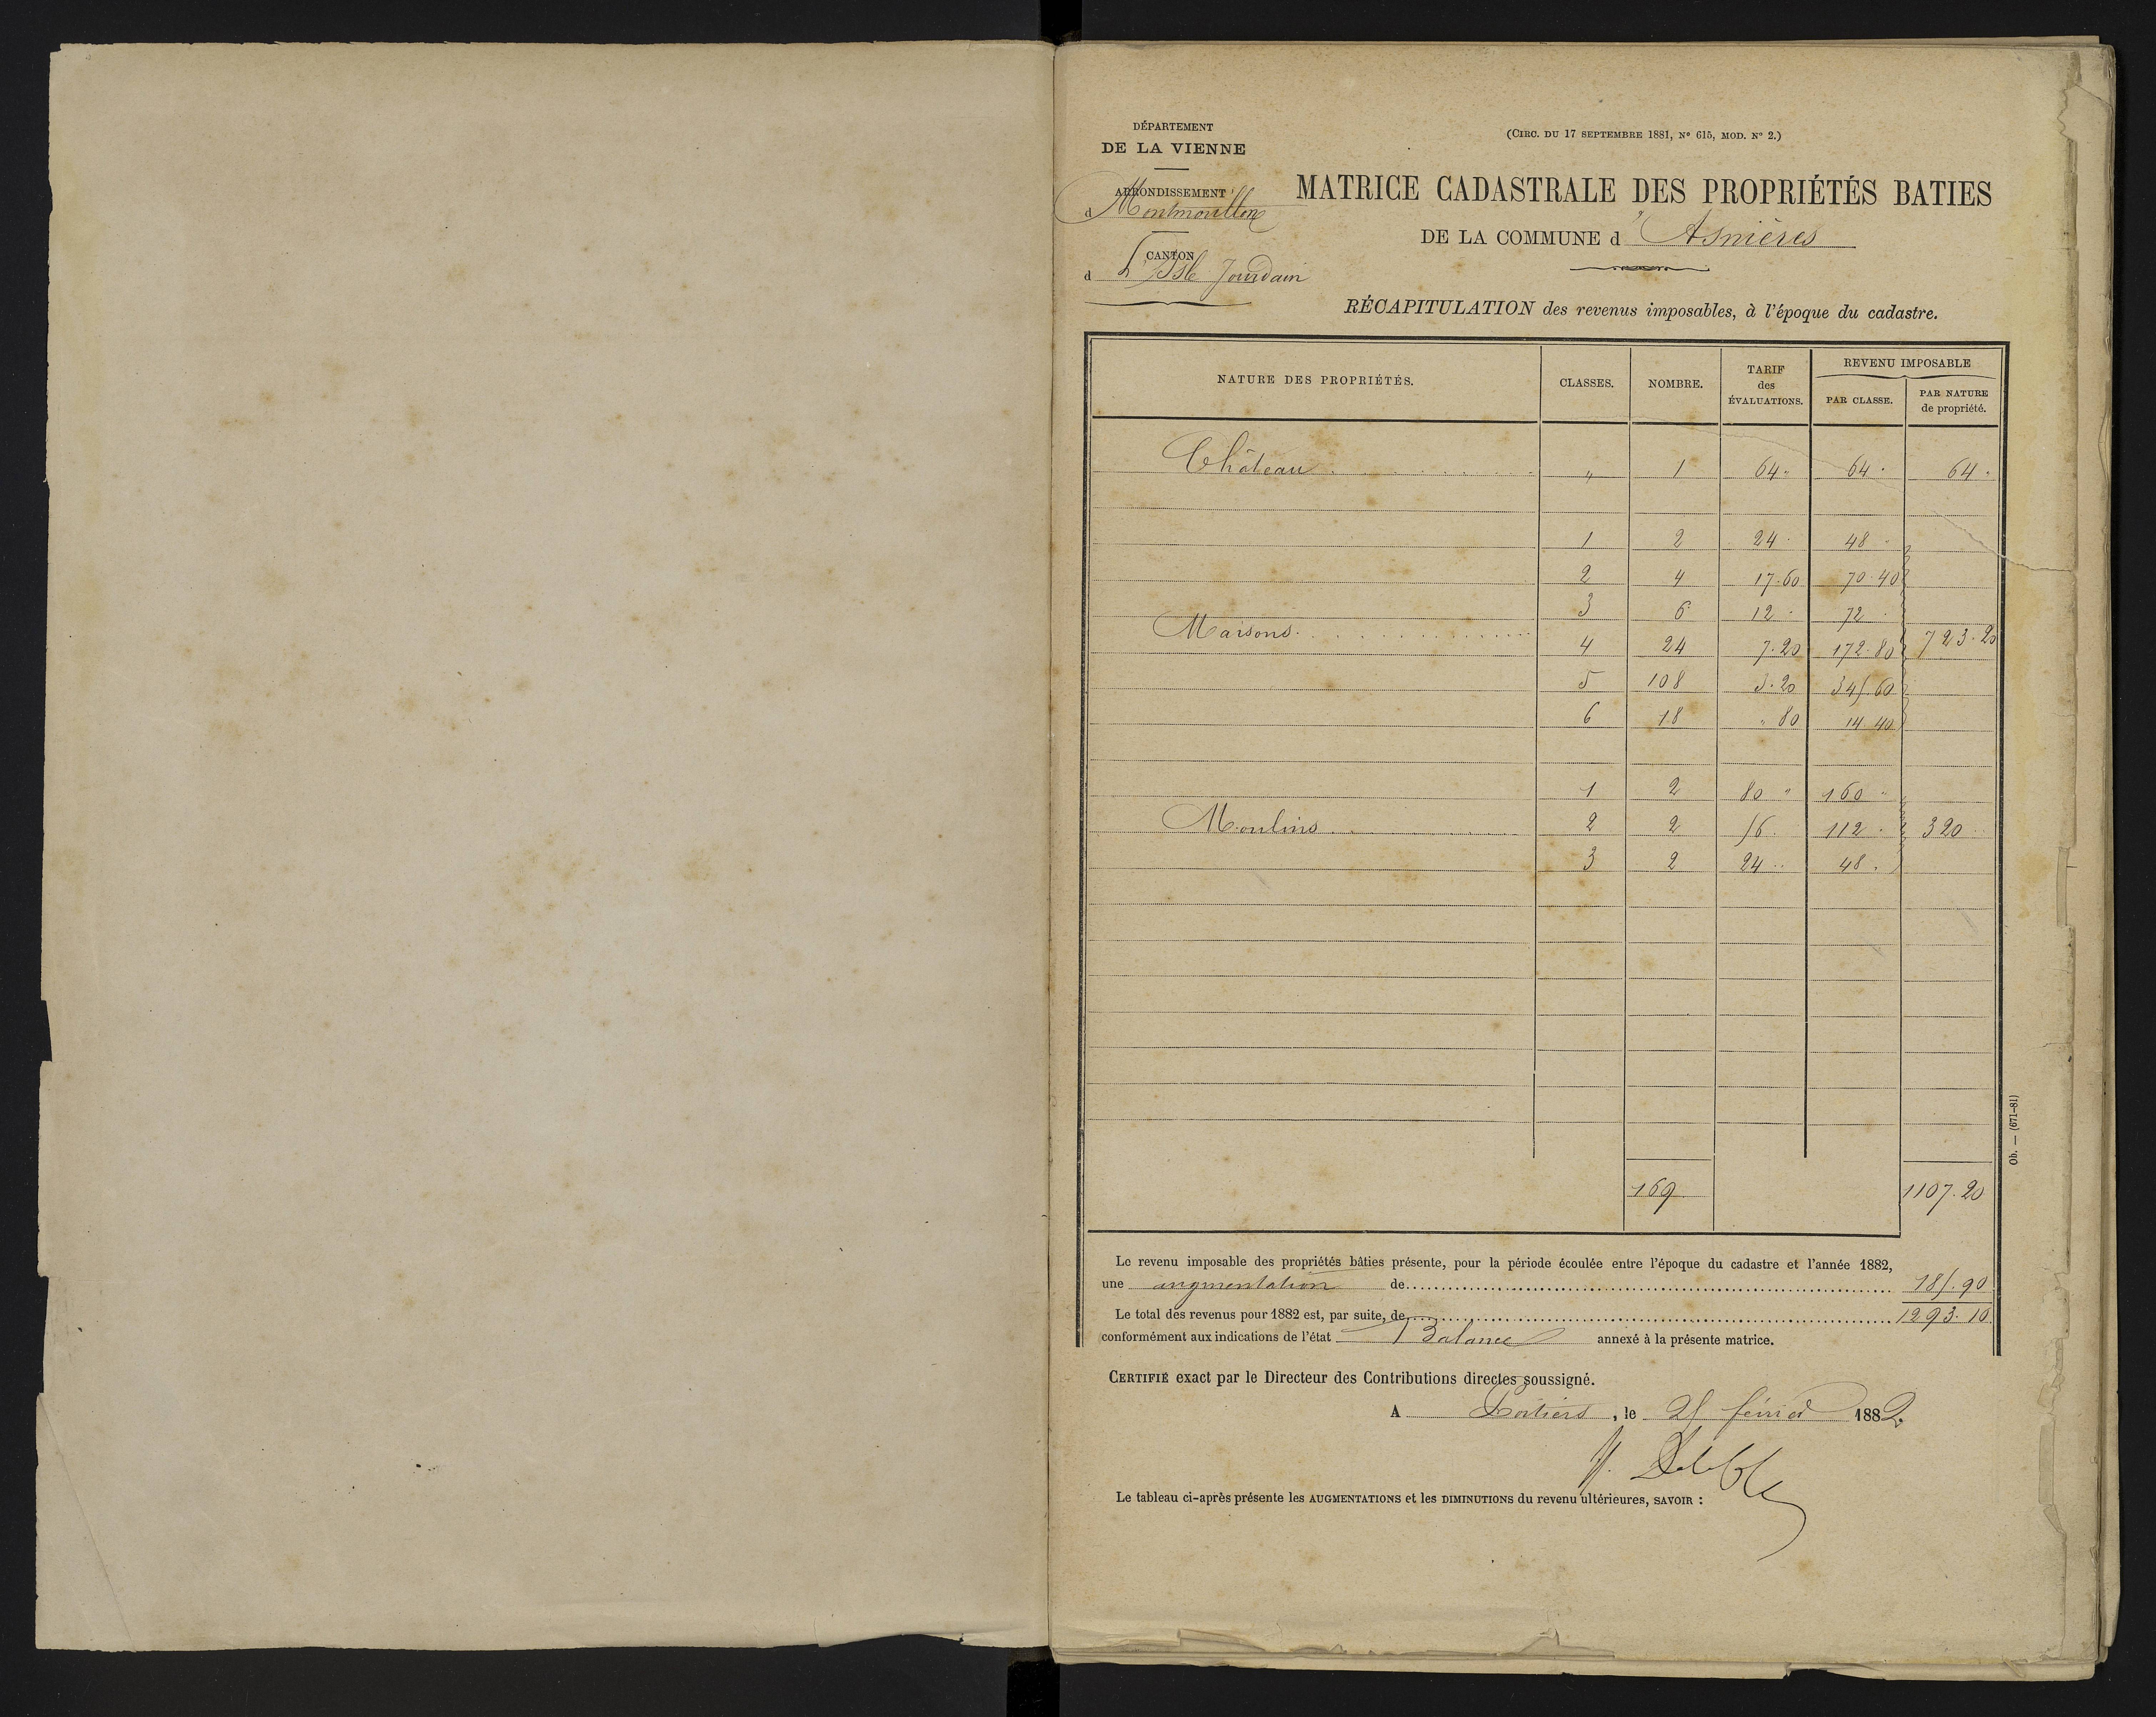 DÉPARTEMENT
DE LA VIENNE
ARRONDISSEMENT
d Montmorillon
CANTON
d L'Isle Jourdain
(CIRC. DU 17 SEPTEMBRE 1881, N° 615, MOD. N° 2.)
MATRICE CADASTRALE DES PROPRIÉTÉS BATIES
DE LA COMMUNE d'Asnières
RÉCAPITULATION des revenus imposables, à l'époque du cadastre.
NATURE DES PROPRIÉTÉS. CLASSES. NOMBRE. TARIF des ÉVALUATIONS. REVENU IMPOSABLE PAR CLASSE. PAR NATURE de propriété.
Château " 1 64 " 64 " 64 "
1 2 24 " 48 "
2 4 17.60 70.40
3 6 12 " 72 "
Maisons 4 24 7.20 172.80 723.20
5 108 3.20 345.60
6 18 " 80 14.40
1 2 80 " 160 "
Moulins 2 2 56 " 112 " 320 "
3 2 24 " 48 "
169 1107.20
Le revenu imposable des propriétés bâties présente, pour la période écoulée entre l'époque du cadastre et l'année 1882,
une augmentation de 185.90
Le total des revenus pour 1882 est, par suite, de 1293.10
conformément aux indications de l'état Balance annexé à la présente matrice.
CERTIFIÉ exact par le Directeur des Contributions directes soussigné.
A Poitiers, le 25 février 1882.
Le tableau ci-après présente les AUGMENTATIONS et les DIMINUTIONS du revenu ultérieures, SAVOIR :
Ob. — (671-81)